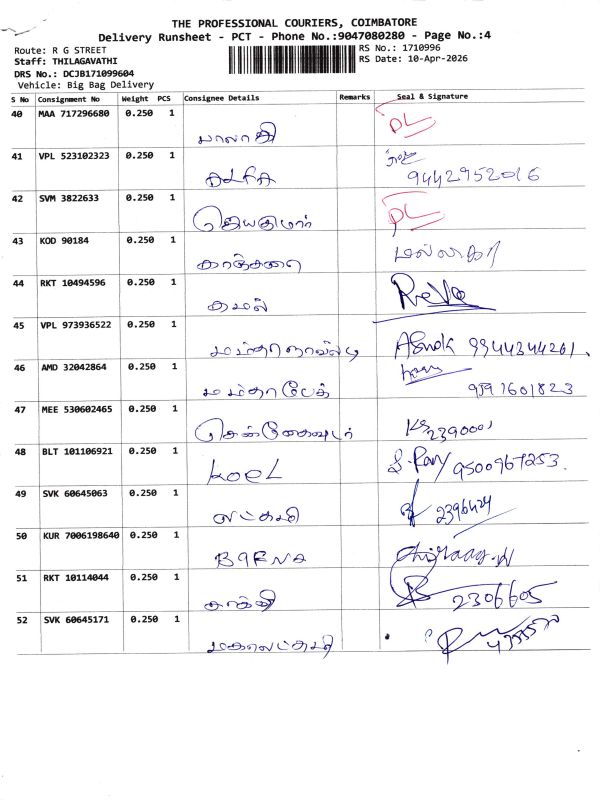 THE PROFESSIONAL COURIERS, COIMBATORE
Delivery Runsheet - PCT - Phone No.:9047080280 - Page No.:4
Route: R G STREET
RS No.: 1710996
Staff: THILAGAVATHI
RS Date: 10-Apr-2026
DRS No.: DCJB171099604
Vehicle: Big Bag Delivery
S No Consignment No Weight PCS Consignee Details Remarks Seal & Signature
40 MAA 717296680 0.250 1 பாலாஜி DL
41 VPL 523102323 0.250 1 9442952016
42 SVM 3822633 0.250 1 ஜெயகுமார் DL
43 KOD 90184 0.250 1
44 RKT 10494596 0.250 1 கமல்
45 VPL 973936522 0.250 1 Ashok 9944344261.
46 AMD 32042864 0.250 1 9597601823
47 MEE 530602465 0.250 1 2390001
48 BLT 101106921 0.250 1 KOEL 9500967253.
49 SVK 60645063 0.250 1 லட்சுமி 2396424
50 KUR 7006198640 0.250 1
51 RKT 10114044 0.250 1 2306605
52 SVK 60645171 0.250 1 மகாலட்சுமி